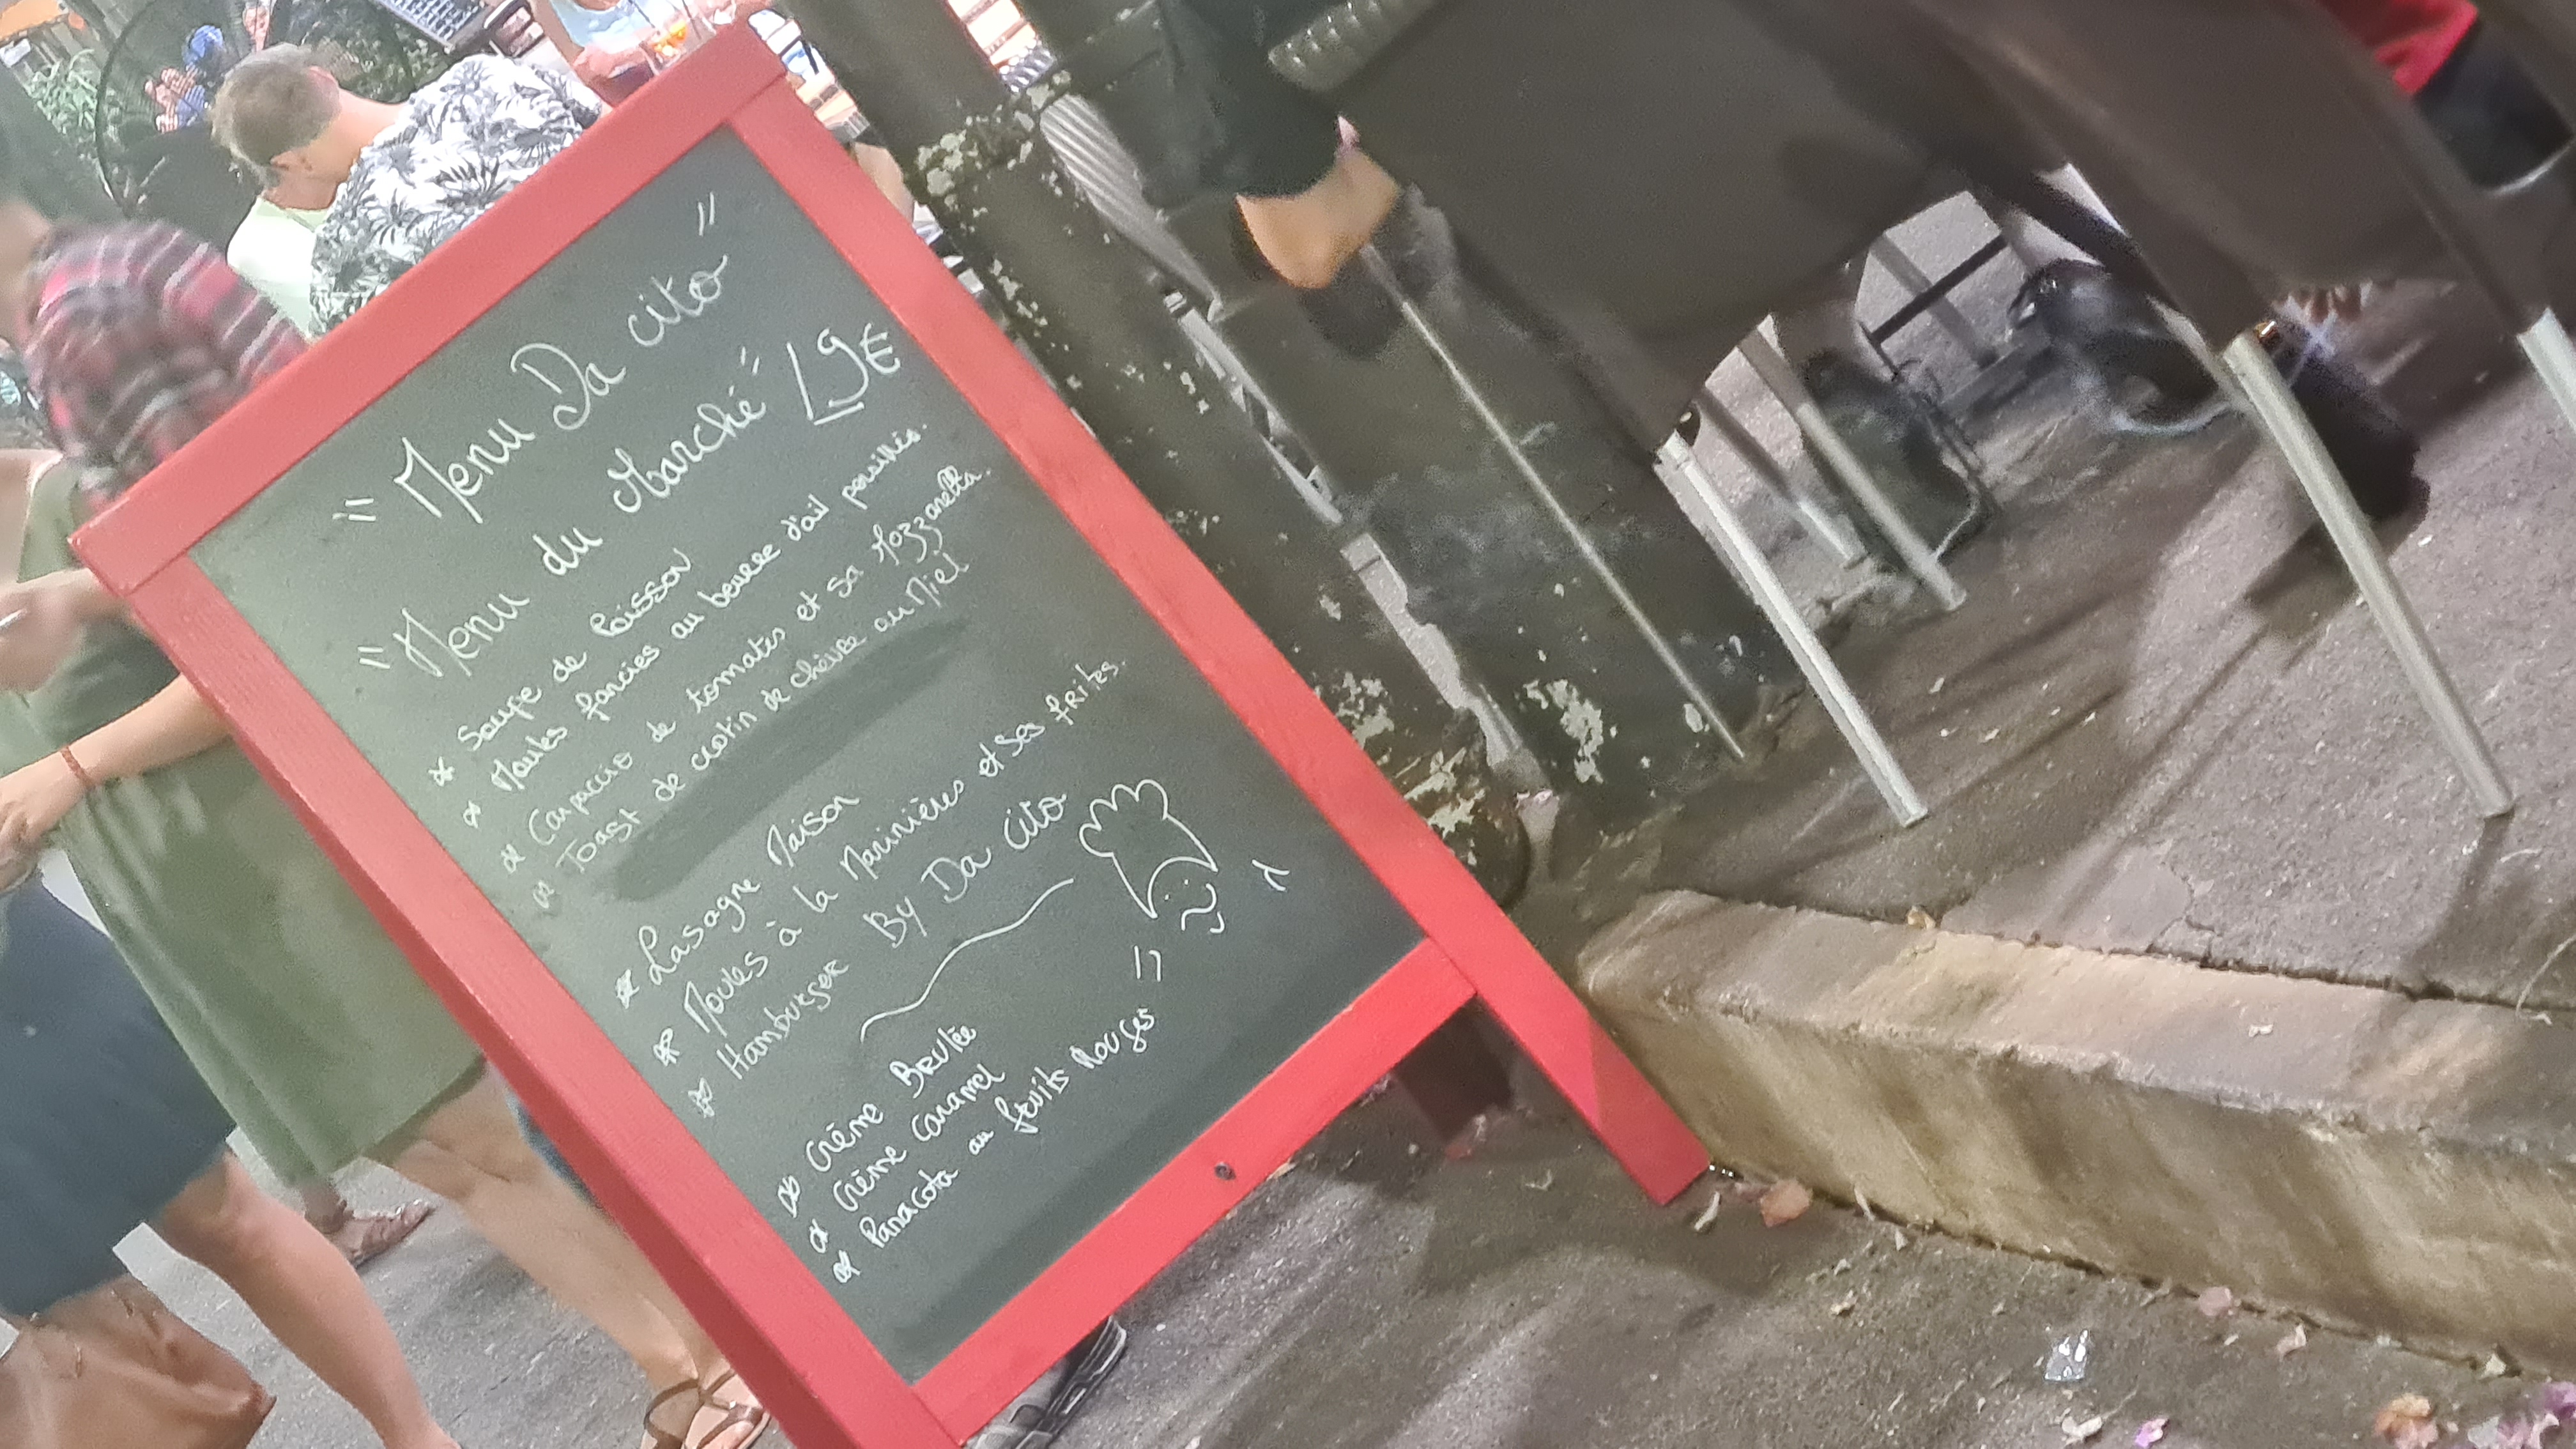 " Menu Da cito "
" Menu du Marché " 19€
* Soupe de Poisson
* Moules farcies au beurre d'ail persillés.
* Carpaccio de tomates et sa Mozzarella.
* Toast de crotin de chèvre au Miel
* Lasagne Maison
* Moules à la Marinières et ses frites.
* Hamburger By Da Cito
* Crème Brulée
* Crème Caramel
* Panacota au fruits Rouges